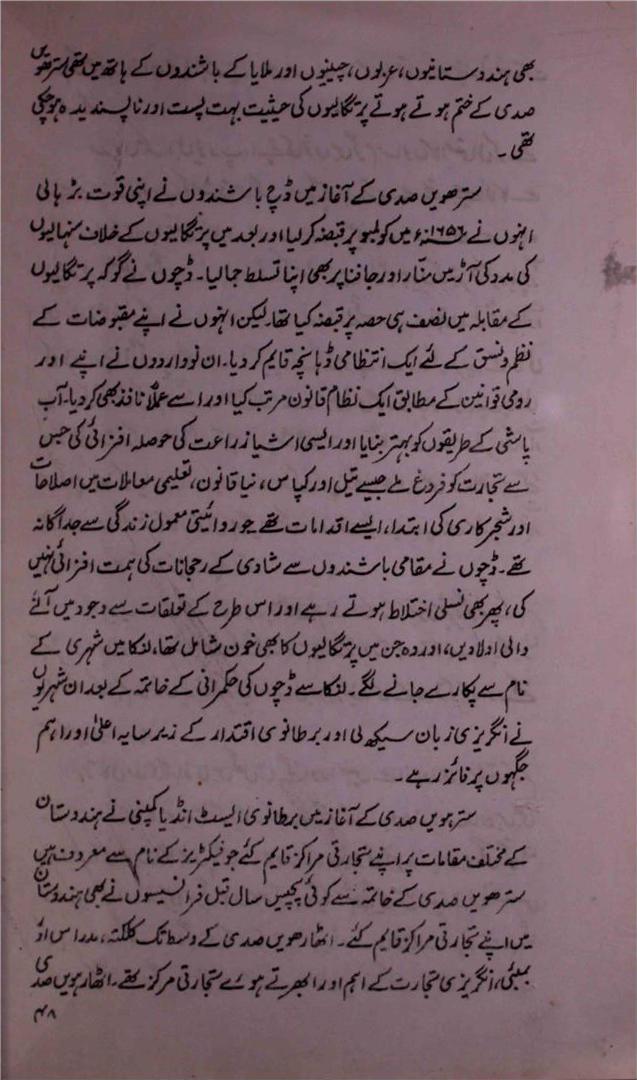 بھی ہندوستانیوں، عربوں، چینیوں اور ملایا کے باشندوں کے ہاتھ میں تھی سترھویں
صدی کے ختم ہوتے ہوتے پرتگالیوں کی حیثیت بہت پست اور ناپسندیدہ ہوچکی
تھی ۔
سترھویں صدی کے آغاز میں ڈچ باشندوں نے اپنی قوت بڑہالی
انہوں نے ۱۶۵۶ء میں کولمبو پر قبضہ کرلیا اور بعد میں پرتگالیوں کے خلاف سنہالیوں
کی مدد کی آڑ میں منّار اور جافنا پر بھی اپنا تسلط جمالیا۔ ڈچوں نے گوکہ پرتگالیوں
کے مقابلہ میں نصف ہی حصہ پر قبضہ کیا تھا۔لیکن انہوں نے اپنے مقبوضات کے
نظم و نسق کے لئے ایک انتظامی ڈہانچہ قایم کردیا۔ ان نوواردوں نے اپنے اور
رومی قوانین کے مطابق ایک نظام قانون مرتب کیا اور اسے عملاً نافذ بھی کردیا۔ آب
پاشی کے طریقوں کو بہتر بنایا اور ایسی اشیا زراعت کی حوصلہ افزائی کی جس
سے تجارت کو فروغ ملے جیسے تیل اور کپاس، نیا قانون، تعلیمی معاملات میں اصلاحات
اور شجر کاری کی ابتدا، ایسے اقدامات تھے جو روائیتی معمول زندگی سے جداگانہ
تھے۔ ڈچوں نے مقامی باشندوں سے شادی کے رحجانات کی ہمت افزائی نہیں
کی، پھر بھی نسلی اختلاط ہوتے رہے اور اس طرح کے تعلقات سے وجود میں آنے
والی اولادیں، اور وہ جن میں پرتگالیوں کا بھی خون شامل تھا، لنکا میں شہری کے
نام سے پکارے جانے لگے۔ لنکا سے ڈچوں کی حکمرانی کے خاتمہ کے بعد ان شہریوں
نے انگریزی زبان سیکھ لی اور برطانوی اقتدار کے زیر سایہ اعلیٰ اور اہم
جگہوں پر فائز رہے ۔
سترہویں صدی کے آغاز میں برطانوی ایسٹ انڈیا کمپنی نے ہندوستان
کے مختلف مقامات پر اپنے تجارتی مراکز قایم کئے جو فیکٹریز کے نام سے معروف ہیں
سترھویں صدی کے خاتمہ سے کوئی پچیس سال قبل فرانسیسوں نے بھی ہندوستان
میں اپنے تجارتی مراکز قایم کئے۔ اٹھارھویں صدی کے وسط تک کلکتہ، مدراس اور
بمبئی، انگریزی تجارت کے اہم اور ابھرتے ہوئے تجارتی مرکز تھے۔ اٹھارہویں صدی
۴۸